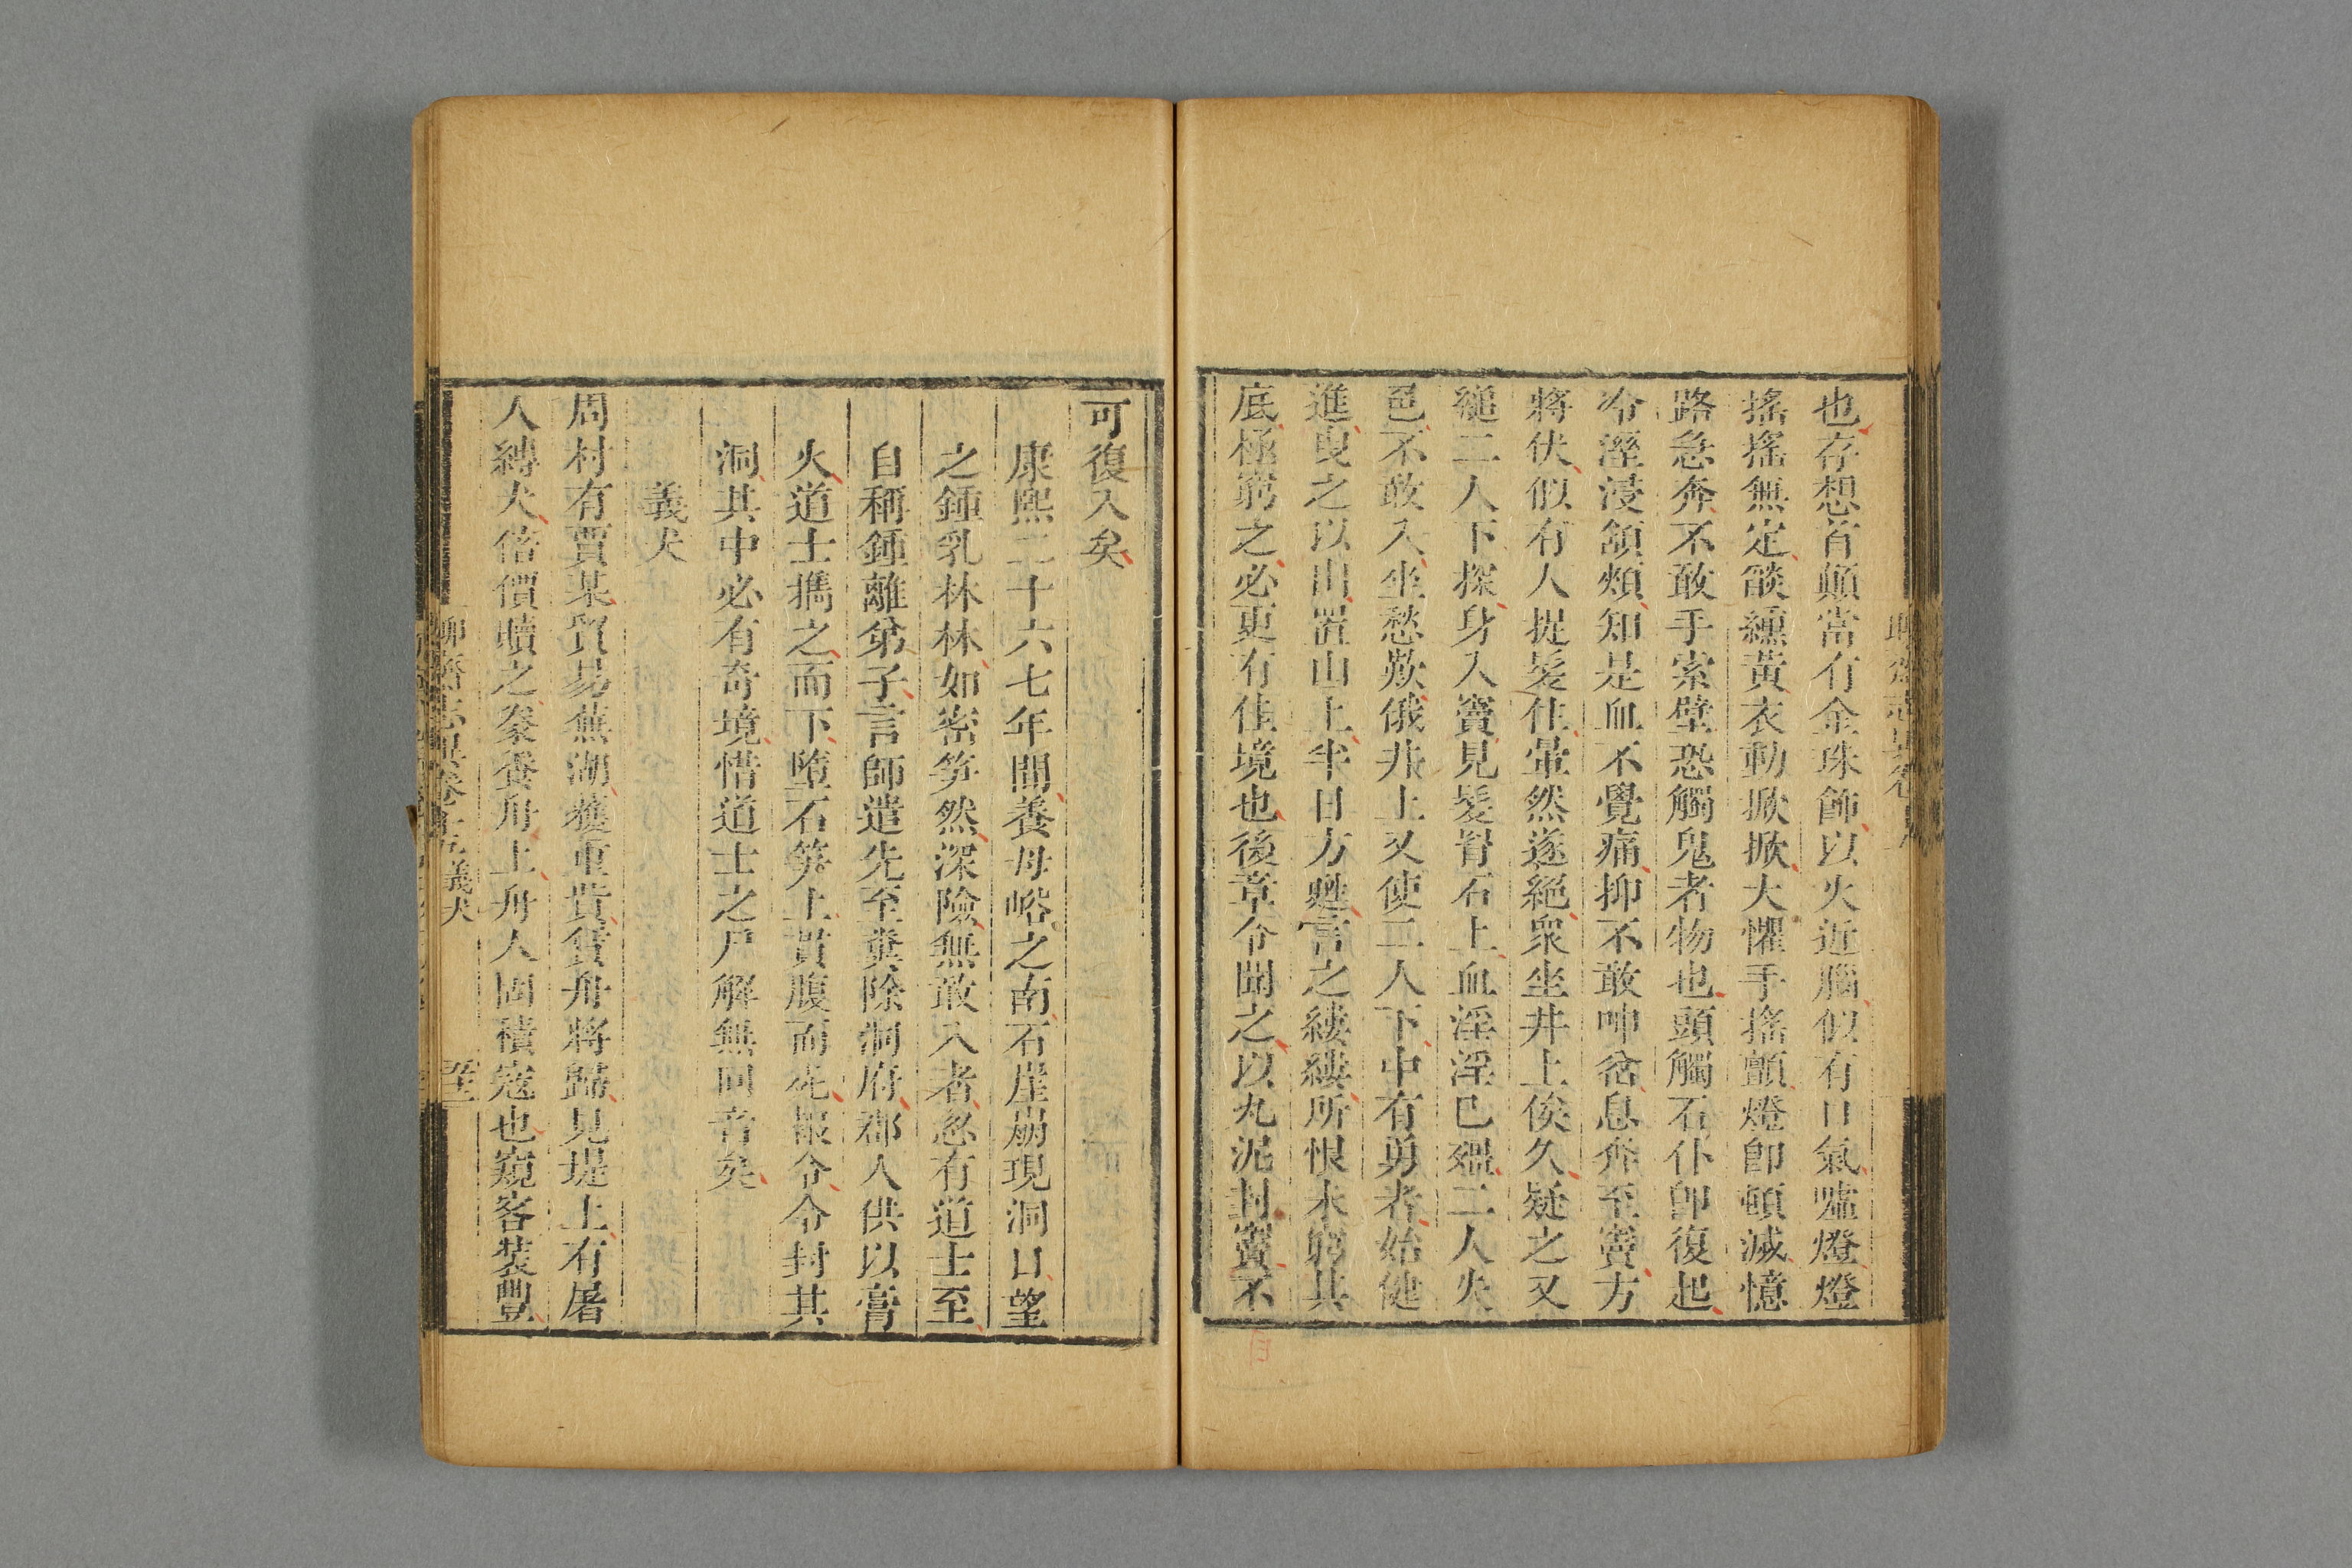 也存想首顛當有金珠飾以火近腦似有口氣噓燈燈
搖搖無定燄纁黃衣動掀掀大懼手搖顫燈卽頓滅憶
路急奔不敢手索壁恐觸鬼者物也頭觸石仆卽復起
冷溼浸頷頰知是血不覺痛抑不敢呻岔息奔至竇方
將伏似有人捉髮住暈然遂絕衆坐井上俟久疑之又
縋二人下探身入竇見髮罥石上血淫淫已殭二人失
色不敢入坐愁歎俄井上又使二人下中有勇者始健
進曳之以出置山上半日方甦言之縷縷所恨未窮其
底極窮之必更有佳境也後章令聞之以丸泥封竇不
可復入矣
康熙二十六七年間養母峪之南石崖崩現洞口望
之鍾乳林林如密笋然深險無敢入者忽有道士至
自稱鍾離弟子言師遣先至糞除洞府郡人供以膏
火道士攜之而下墮石笋上貫腹而死報令令封其
洞其中必有奇境惜道士之尸解無回音矣
義犬
周村有賈某貿易蕪湖獲重貲賃舟將歸見堤上有屠
人縛犬倍價贖之豢養舟上舟人固積寇也窺客裝豐
聊齋志異卷十五 義犬